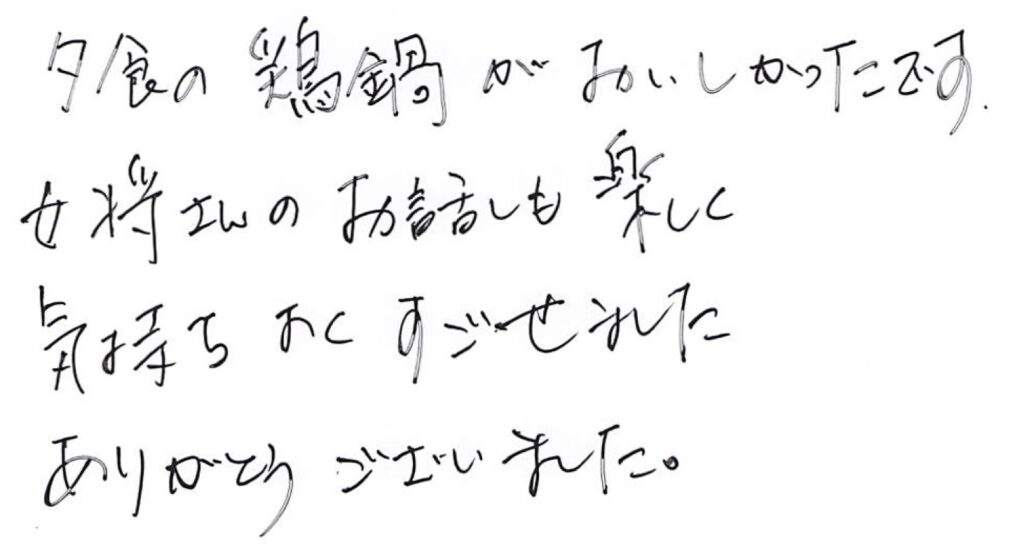 夕食の鶏鍋がおいしかったです.
女将さんのお話しも楽しく
気持ちよくすごせました
ありがとうございました。